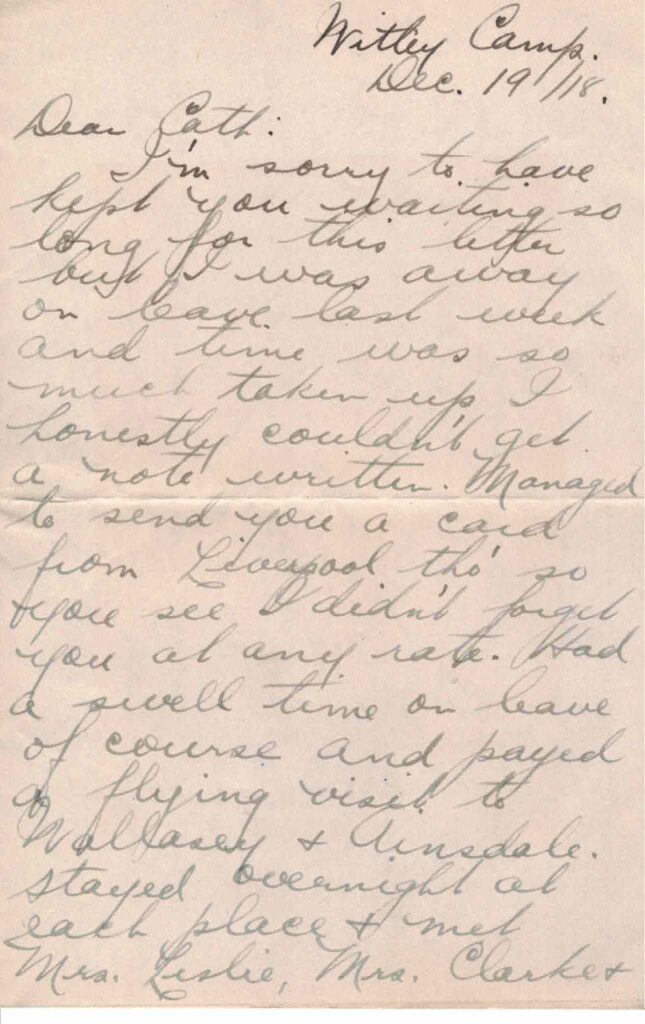 Witley Camp.
Dec. 19/18.
Dear Cath:
I'm sorry to have
kept you waiting so
long for this letter
but I was away
on leave last week
and time was so
much taken up I
honestly couldn't get
a note written. Managed
to send you a card
from Liverpool tho' so
you see I didn't forget
you at any rate. Had
a swell time on leave
of course and payed
a flying visit to
Wallasey & Ainsdale.
stayed overnight at
each place & met
Mrs. Leslie, Mrs. Clarke &